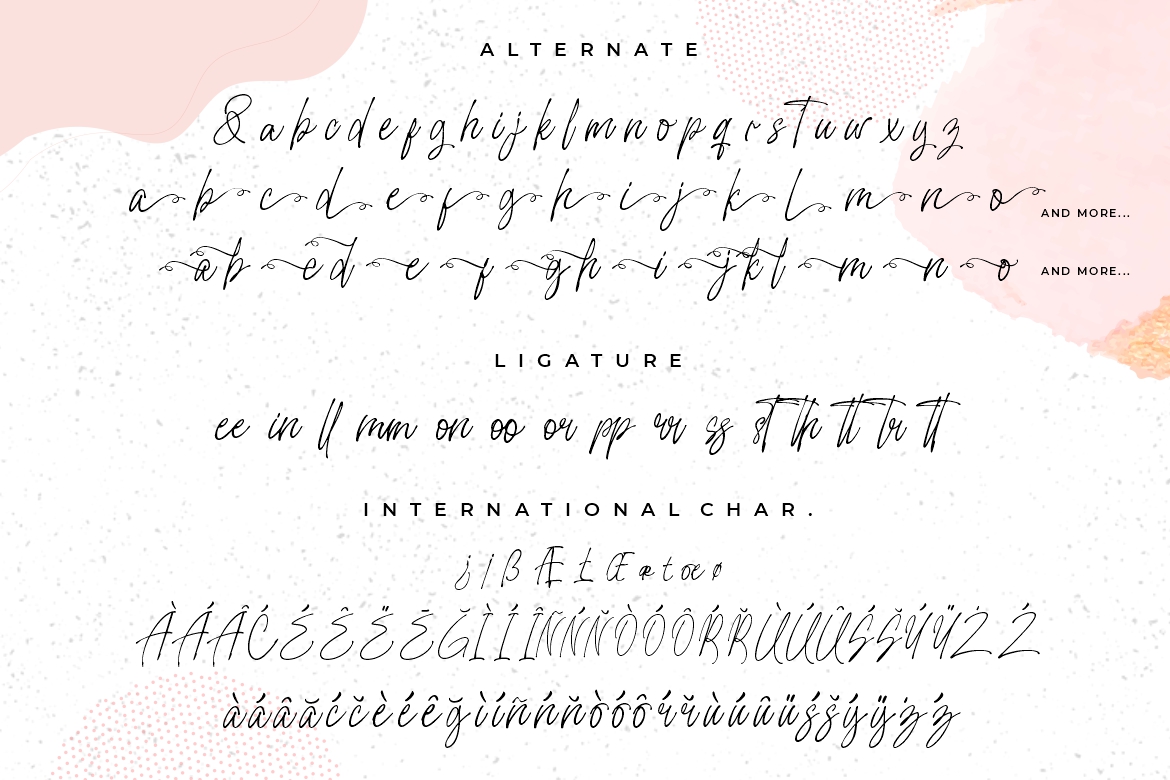 ALTERNATE
& a b c d e f g h i j k l m n o p q r s t u w x y z
a b c d e f g h i j k l m n o AND MORE...
a b c d e f g h i j k l m n o AND MORE...
LIGATURE
ee in ll mm on oo or pp rr ss st th tt tr tt
INTERNATIONAL CHAR.
¿ ¡ ß Æ Ł Œ æ t œ ø
À Á Â Ć É Ê Ë Ē Ğ Ì Í Î Ñ Ń Ň Ò Ó Ô Ŕ Ř Ù Ú Û Ś Š Ý Ÿ Ż Ź
à á â ă ć č è é ê ğ ì í ñ ń ň ò ó ô ŕ ř ù ú û ü ś š ý ÿ ż ź